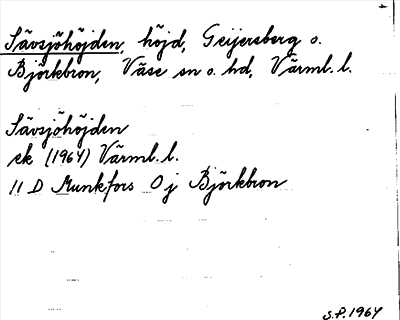 Sävsjöhöjden, höjd, Geijersberg o.
Björkbron, Väse sn o. hd, Värml. l.
Sävsjöhöjden
ek (1964) Värml. l.
11 D Munkfors 0 j Björkbron
S.P. 1964